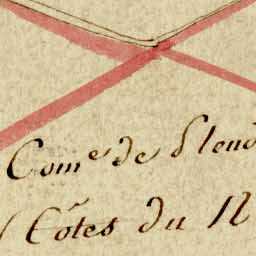 Com^e de Plend
Côtes du N